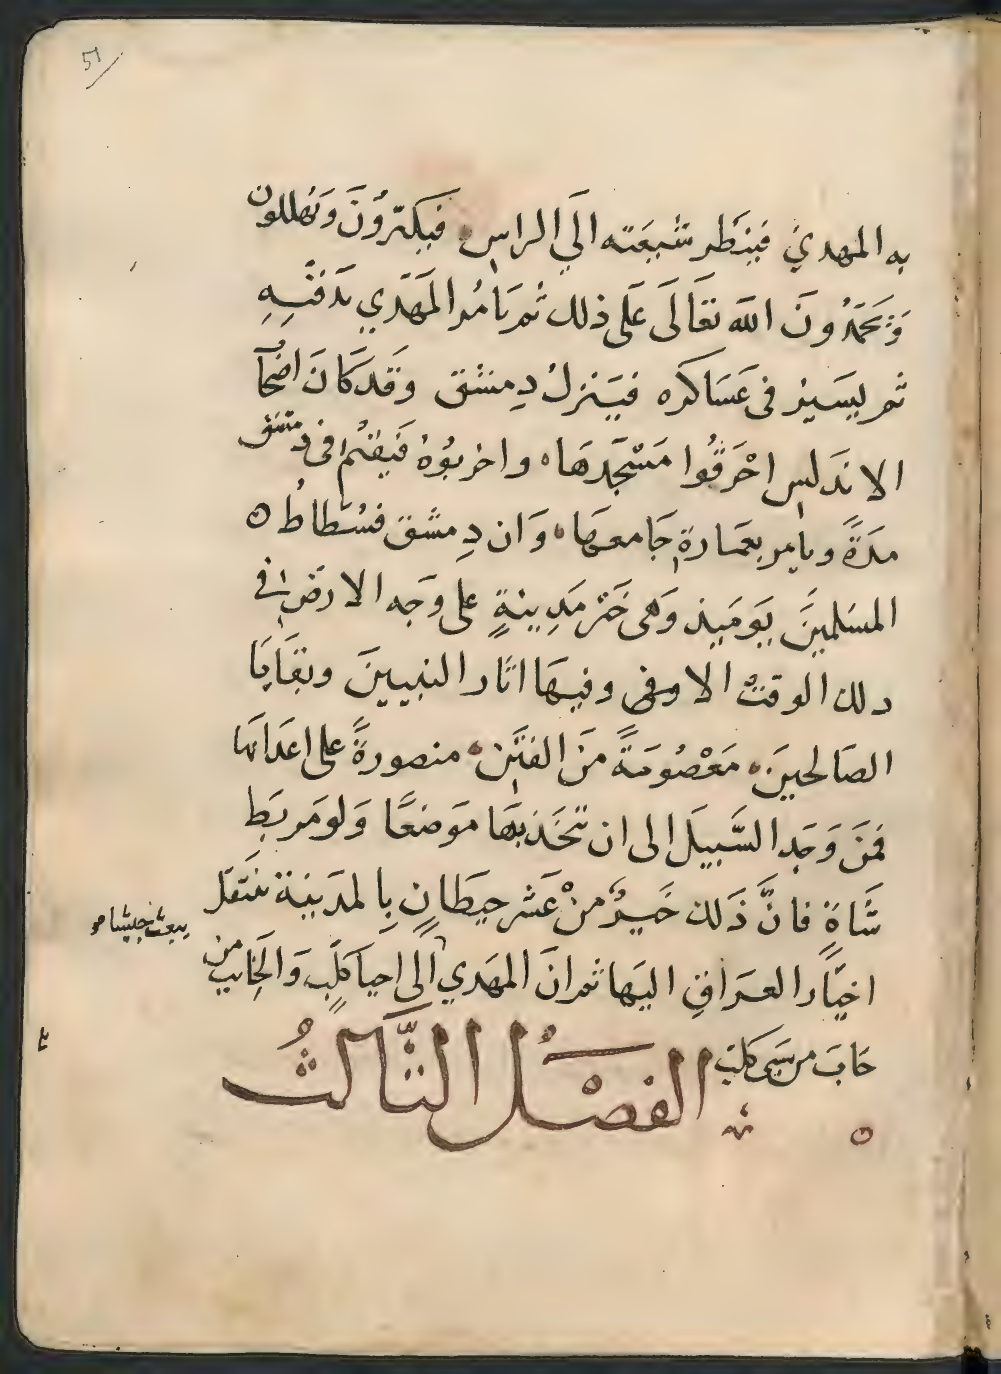 51
به المهدي فينظر شيعته الي الراس فيكبّرون ويهللون
وَيَحمَدُونَ الله تعَالَى عَلَى ذلك ثُم يَامُر المَهَدّي بَدفنِهِ
ثم يسَير فى عَسَاكره فيَنزلُ دِمشق وقَد كَانَ اصْحَاب
الاندَلس احْرَقُوا مَسْجَدهَا واخربوُهُ فَيقيُم فى دمشق
مدَةً ويامر بعمَارةِ جَامعهَا وَان دِمشق فسْطاطُ
المسَلمينَ يَومَيذ وَهى خَير مَدِينةٍ على وَجه الارض في
دلك الوقتُ الا وهى وفيهَا اثَار النبيينَ وبقَايَا
الصَالحينَ مَعْصُومَةً مَن الفتَن منصورةً على اعَدَايهَا
فمَن وَجَد السَّبيَل الى ان تتخَذ بهَا مَوضعًا وَلو مَربَط
شَاةٍ فانَّ ذَلك خَيرُ منْ عَشر حيَطَانٍ بِالمدَينة تنتَقل
اخيَار العرَاقِ اليَها ثم انَ المهَدي الَى احيَا كَلَب وَالخَايب من
خَابَ من سَبى كلبَ
الفصَلُ الثَّالثُ
يبعث بجيشا